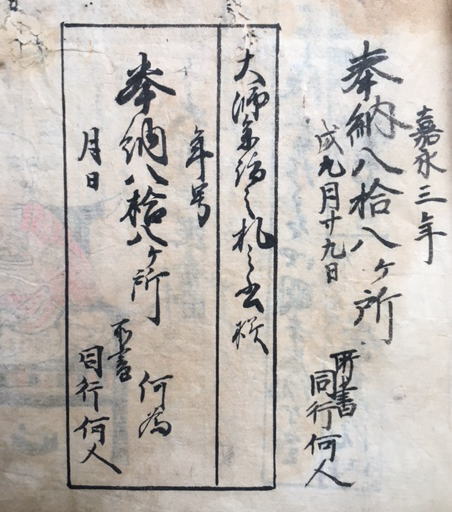 嘉永三年
奉納八拾八ヶ所
戌九月廿九日
所書
同行何人
大師御参詣之札之書様
年号
奉納八拾八ヶ所
月日
何為
所書
同行何人